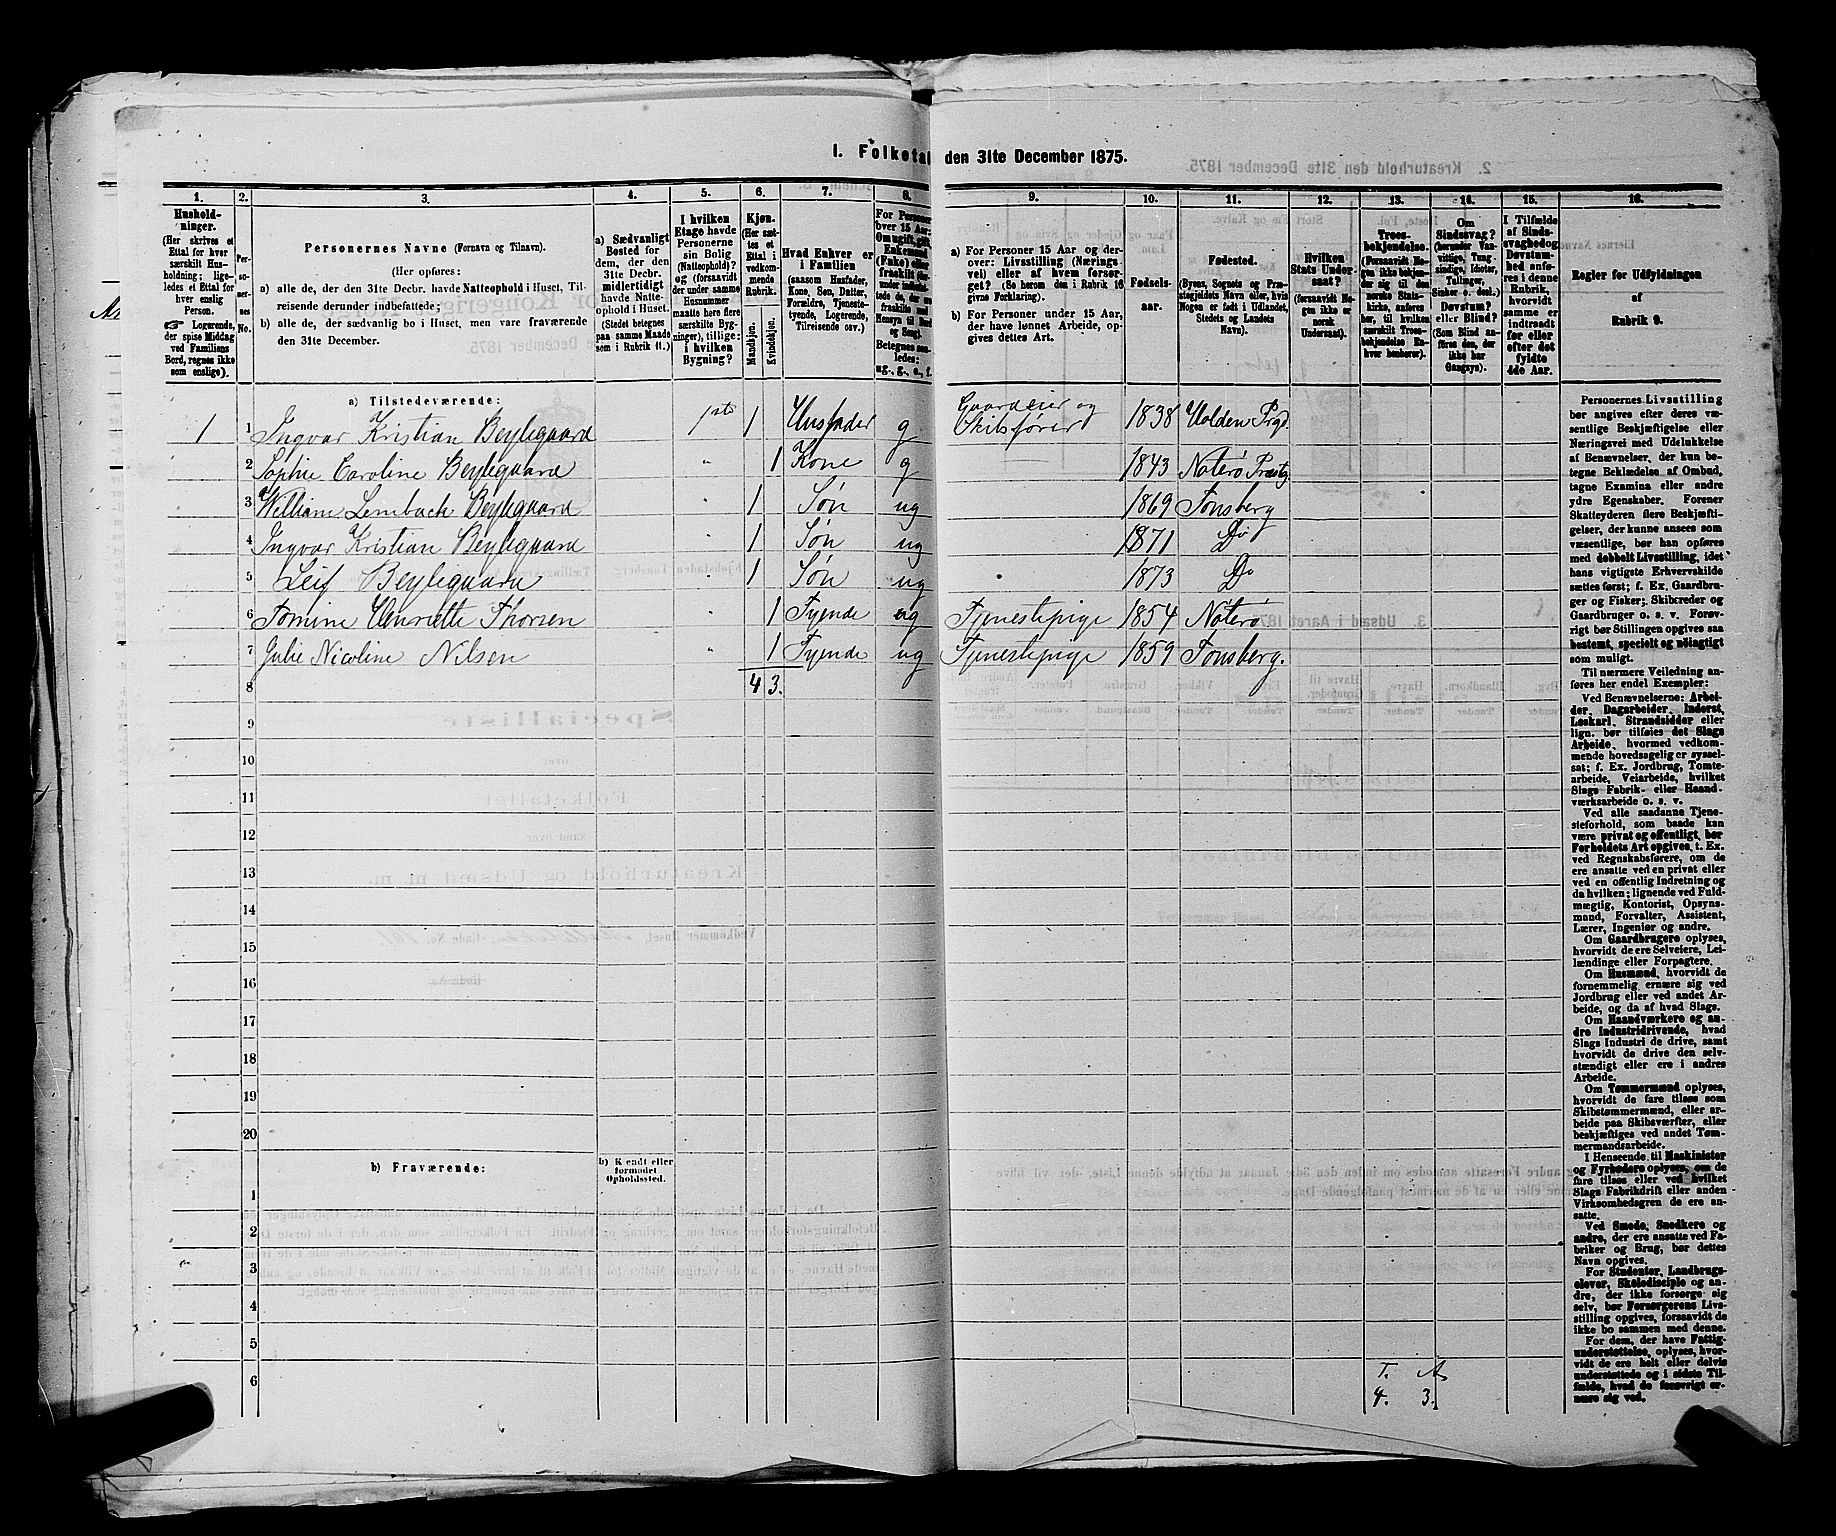 1. Folketal den 31te December 1875.
1. 2. 3. 4. 5. 6. 7. 8. 9. 10. 11. 12. 13. 14. 15. 16.
Hushold-
ninger.
(Her skrives et
Ettal for hver
særskilt Hus-
holdning; lige-
ledes et Ettal for
hver enslig
Person.
☞ Logerende,
der spise Middag
ved Familiens
Bord, regnes ikke
som enslige).
Per-
so-
ner-
nes
No.
Personernes Navne (Fornavn og Tilnavn).
(Her opføres:
a) alle de, der den 31te Decbr. havde Natteophold i Huset, Til-
reisende derunder indbefattede;
b) alle de, der sædvanlig bo i Huset, men vare fraværende
den 31te December.
a) Sædvanligt
Bosted for
dem, der den
31te Decbr.
midlertidigt
havde Natte-
ophold i Huset.
(Stedet betegnes
paa samme Maade
som i Rubrik 11.)
I hvilken
Etage havde
Personerne
sin Bolig
(Natteophold)?
og (forsaavidt
der under samme
Husnummer
maatte høre flere
særskilte Byg-
ninger), tillige:
i hvilken
Bygning?
Kjøn.
(Her sæt-
tes et
Ettal i
vedkom-
mende
Rubrik.
Mandkjøn.
Kvindekjøn.
Hvad Enhver er
i Familien
(saasom Husfader,
Kone, Søn, Datter,
Forældre, Tjeneste-
tyende, Logerende,
Tilreisende osv.)
For Personer
over 15 Aar:
Om ugift, gift,
Enkemand
(Enke) eller
fraskilt
Betegnes saa-
ledes:
ug., g., e., f.
a) For Personer 15 Aar og der-
over: Livsstilling (Nærings-
vei) eller af hvem forsør-
get? (Se herom den i Rubrik 16
givne Forklaring).
b) For Personer under 15 Aar,
der have lønnet Arbeide, op-
gives dettes Art.
Fødsels-
aar.
Fødested.
(Byens, Sognets og Præ-
stegjeldets Navn eller, hvis
Nogen er født i Udlandet,
Stedets og Landets
Navn).
Hvilken
Stats Under-
saat?
(forsaavidt No-
gen ikke er
norsk
Undersaat).
Troes-
bekjendelse.
(Forsaavidt No-
gen ikke bekjen-
der sig til den
norske Stats-
kirke, anføres
her, til hvilken
særskilt Troes-
bekjendelse En-
hver henhører).
Om
Sindssvag?
(herunder Van-
vittige, Tung-
sindige, Idioter,
Tullinger,
Sinker o. desl.)
Døvstum?
eller Blind?
(Som Blind an-
føres den, der
ikke har
Gangsyn).
I Tilfælde
af Sinds-
svaghed og
Døvstum-
hed anfø-
res i denne
Rubrik,
hvorvidt
samme er
indtraadt
før eller
efter det
fyldte
4de Aar.
Regler for Udfyldningen
af
Rubrik 9.
a) Tilstedeværende:
1 1 Ingvar Kristian Beylegaard 1ste 1 Husfader g Gaardeier og Skibsfører 1838 Holden Prgd
2 Sophie Caroline Beylegaard " 1 Kone g 1843 Nøterø Præstg.
3 William Lembach Beylegaard " 1 Søn ug 1869 Tønsberg
4 Ingvar Kristian Beylegaard " 1 Søn ug 1871 Do
5 Leif Beylegaard " 1 Søn ug 1873 Do
6 Tomine Henriette Thorsen " 1 Tyende ug Tjenestepige 1854 Nøterø
7 Julie Nicoline Nilsen " 1 Tyende ug Tjenestepige 1859 Tønsberg.
8 4 3.
9
10
11
12
13
14
15
16
17
18
19
20
b) Fraværende:
b) Kendt eller
formodet
Opholdssted.
1
2
3
4
5
6
T. A
4. 3.
Personernes Livsstilling
bør angives efter deres væ-
sentlige Beskjæftigelse eller
Næringsvei med Udelukkelse
af Benævnelser, der kun be-
tegne Beklædelse af Ombud,
tagne Examina eller andre
ydre Egenskaber. Forener
Skatteyderen flere Beskjæfti-
gelser, der kunne ansees som
væsentlige, bør han opføres
med dobbelt Livsstilling, idet
hans vigtigste Erhvervskilde
sættes først; f. Ex. Gaardbru-
ger og Fisker; Skibsreder og
Gaardbruger o. s. v. Forøv-
rigt bør Stillingen opgives saa
bestemt, specielt og nøiagtigt
som muligt.
Til nærmere Veiledning an-
føres her endel Exempler:
Ved Benævnelserne: Arbei-
der, Dagarbeider, Inderst,
Løskarl, Strandsidder eller
lign. bør tilføies det Slags
Arbeide, hvormed vedkom-
mende hovedsagelig er syssel-
sat; f. Ex. Jordbrug, Tomte-
arbeide, Veiarbeide, hvilket
Slags Fabrik- eller Haand-
værksarbeide o. s. v.
Ved alle saadanne Tjene-
steforhold, som baade kan
være privat og offentligt, bør
Forholdets Art opgives, t. Ex.
ved Regnskabsførere, om de
ere ansatte ved en privat eller
ved en offentlig Indretning og
da hvilken; lignende ved Fuld-
mægtig, Kontorist, Opsyns-
mand, Forvalter, Assistent,
Lærer, Ingeniør og andre.
Om Gaardbrugere oplyses,
hvorvidt de ere Selveiere, Lei-
lændinge eller Forpagtere.
Om Husmænd, hvorvidt de
fornemmelig ernære sig ved
Jordbrug eller ved andet Ar-
beide, og da af hvad Slags.
Om Haandværkere og an-
dre Industridrivende, hvad
Slags Industri de drive, samt
hvorvidt de drive den selv-
stændigt eller ere i andres
Arbeide.
Om Tømmermænd oplyses,
hvorvidt de fare tilsøs som
Skibstømmermænd, eller ar-
beide paa Skibsværfter, eller
beskjæftiges ved andet Tøm-
mermandsarbeide.
I Henseende til Maskinister
og Fyrbødere oplyses, om de
fare tilsøs eller ved hvilket
Slags Fabrikdrift eller anden
Virksomhedsgren de ere an-
satte.
Ved Smede, Snedkere og
andre, der ere ansatte ved Fa-
briker og Brug, bør dettes
Navn opgives.
For Studenter, Landbrugs-
elever, Skoledisciple og an-
dre, der ikke forsørge sig
selv, bør Forsørgerens Livs-
stilling opgives, forsaavidt de
ikke bo sammen med denne.
For dem, der have Fattig-
understøttelse, oplyses, hvor-
vidt de ere helt eller delvis
understøttede og i sidste Til-
fælde, hvad de forøvrigt er-
nære sig ved.